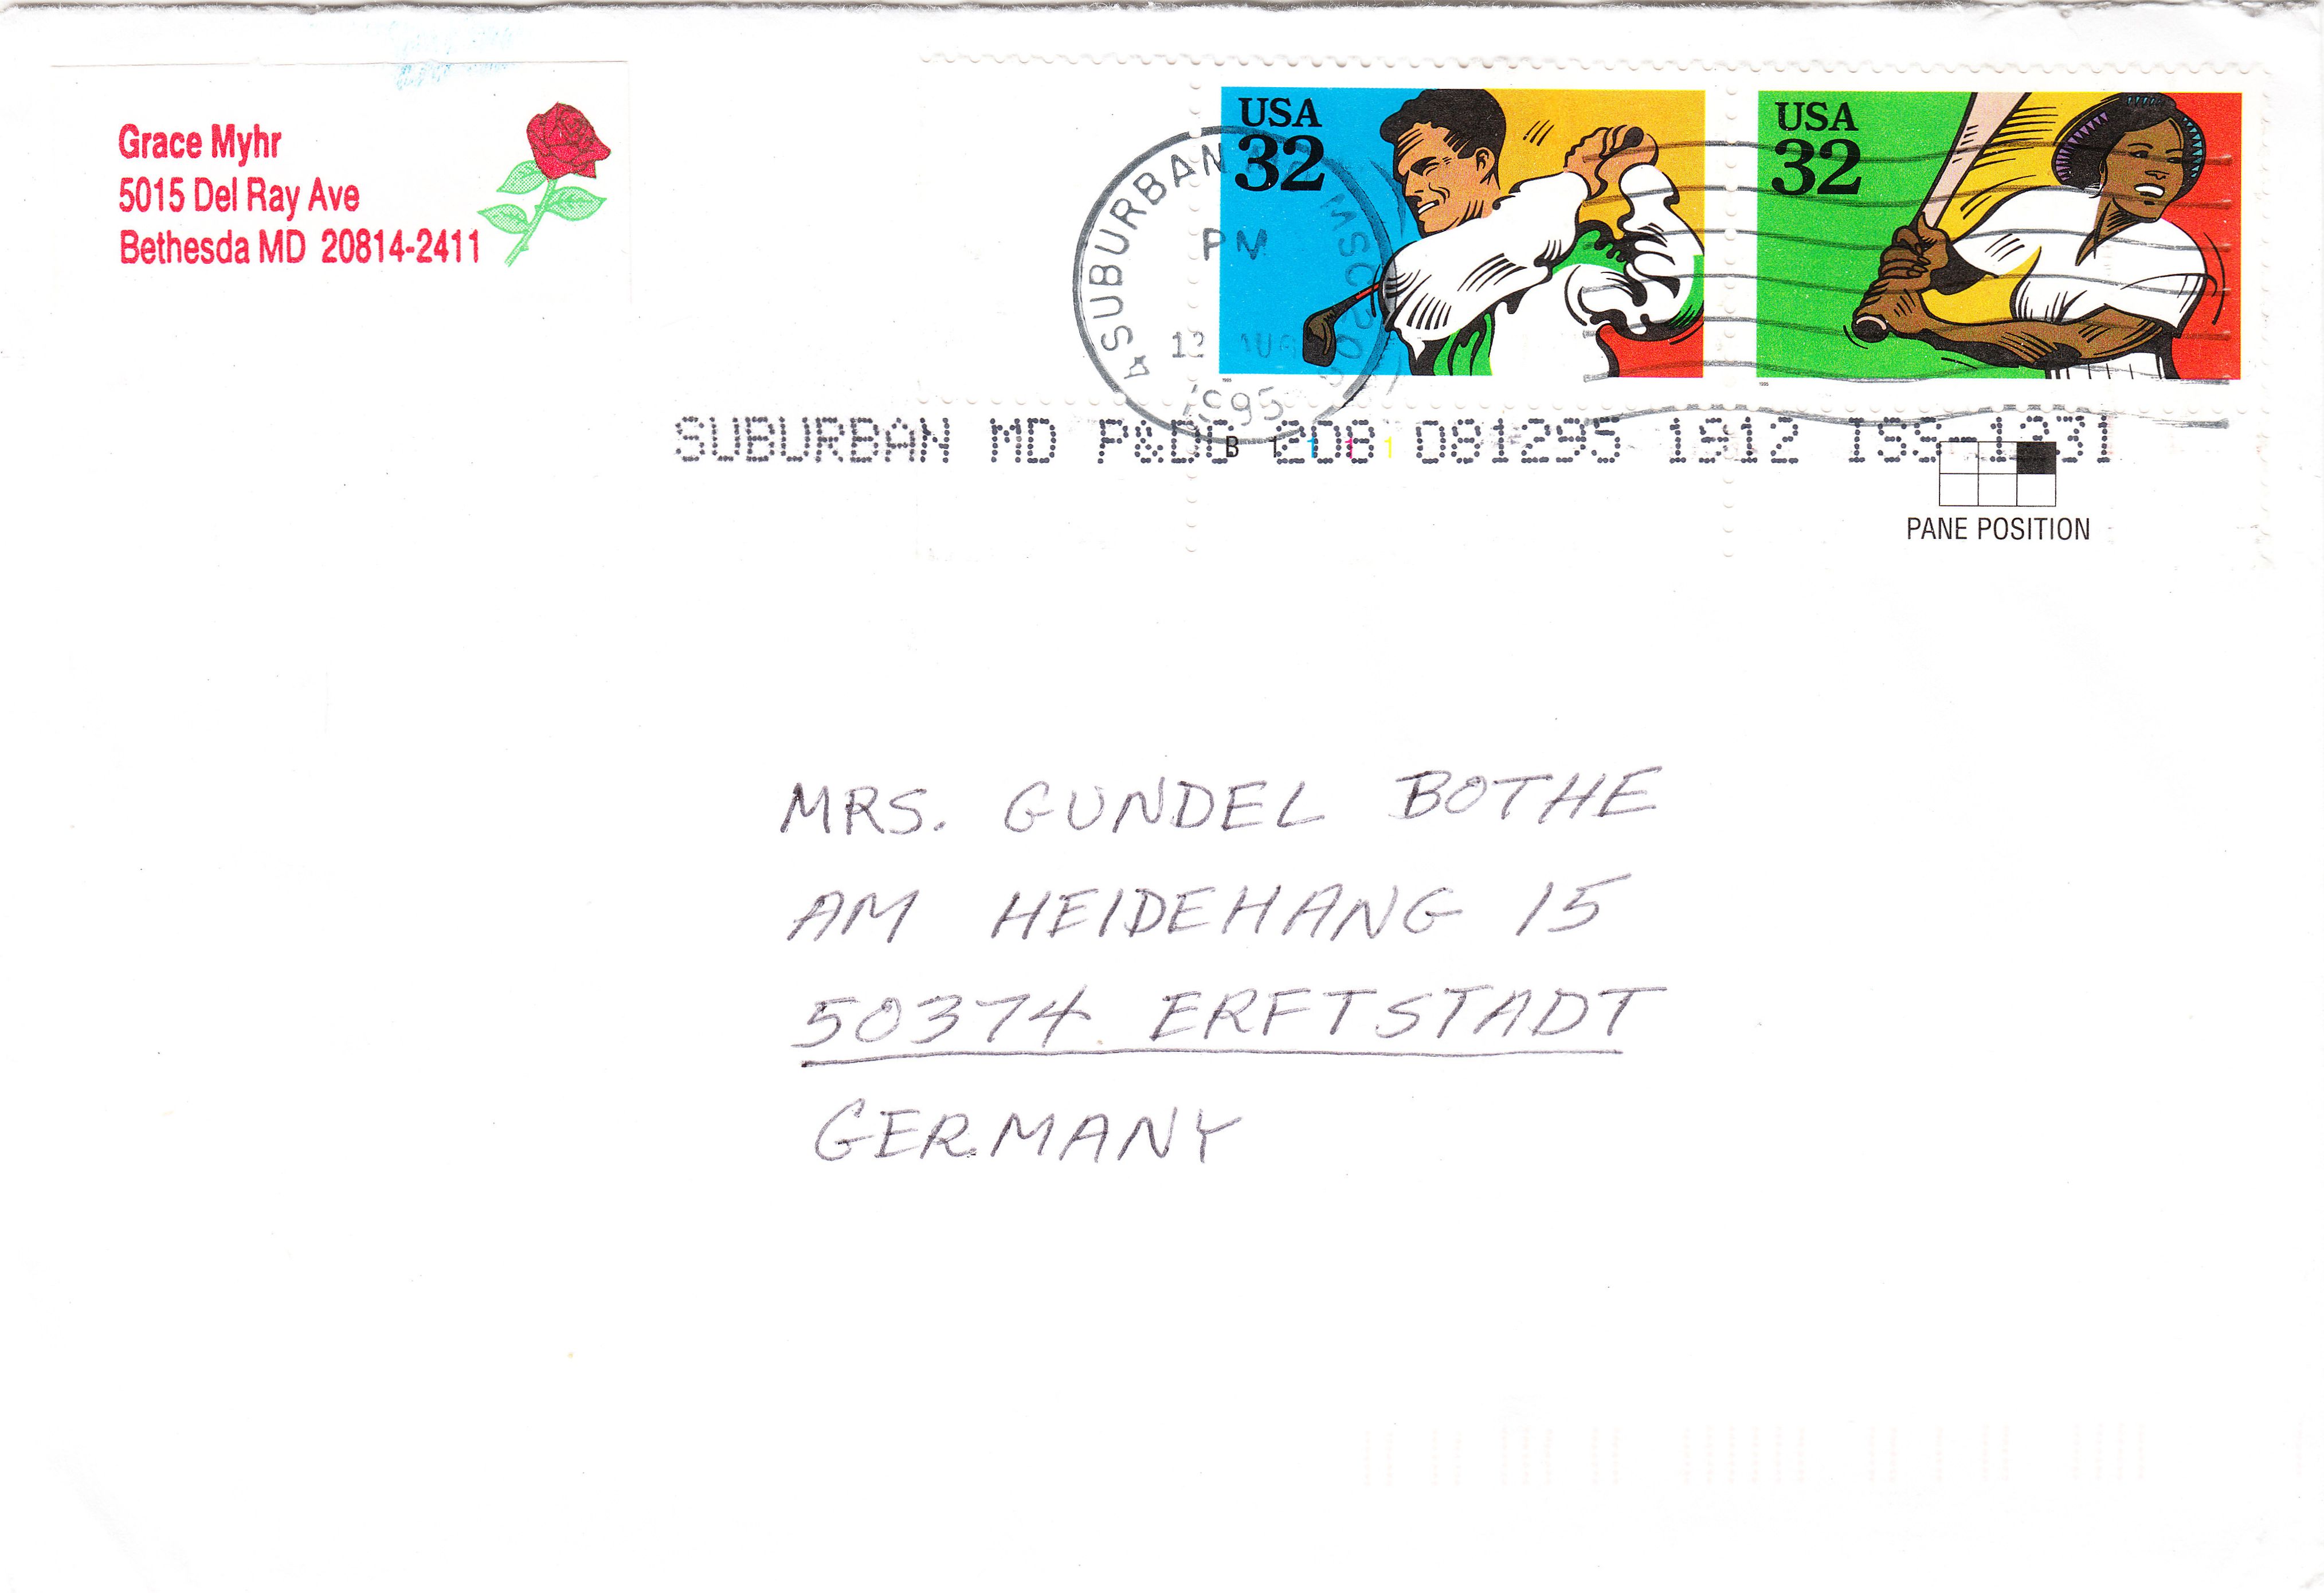 Grace Myhr
5015 Del Ray Ave
Bethesda MD 20814-2411
USA
32
USA
32
SUBURBAN
MSC
PM
12 AUG
1995
SUBURBAN MD P&DC 208 081295 1912 ISS-1231
B 1 1 1 1
PANE POSITION
MRS. GUNDEL BOTHE
AM HEIDEHANG 15
50374 ERFTSTADT
GERMANY